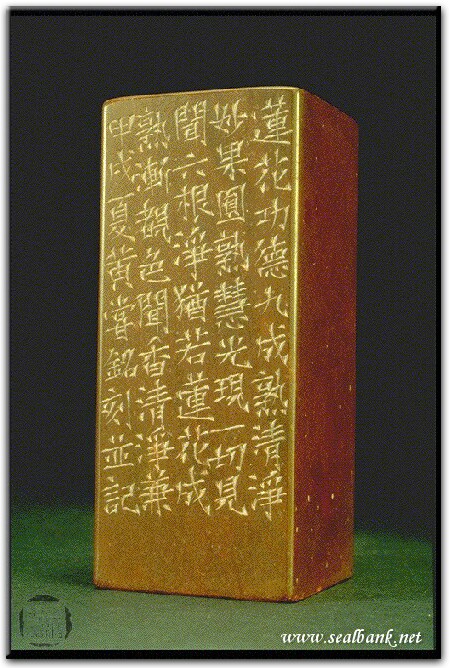 蓮花功德九成熟清淨
妙果圓熟慧光現一切見
聞六根淨猶若蓮花成
熟漸色聞香清淨兼
甲戌夏黃嘗銘刻並記
www.sealbank.net